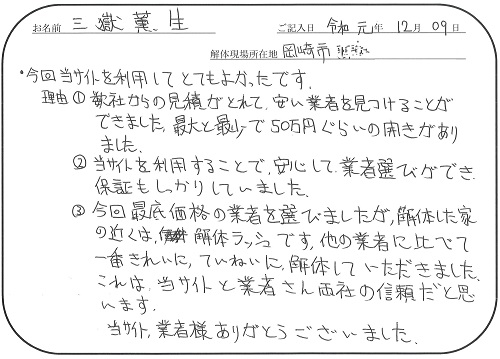 お名前 三嶽薫生 ご記入日 令和元年 12月 09日
解体現場所在地 岡崎市
・今回当サイトを利用してとてもよかったです。
理由① 数社からの見積がとれて、安い業者を見つけることが
できました。最大と最少で50万円ぐらいの開きがあり
ました。
② 当サイトを利用することで、安心して業者選びができ
保証もしっかりしていました。
③ 今回最底価格の業者を選びましたが、解体した家
の近くは、解体ラッシュです、他の業者に比べて
一番きれいに、ていねいに、解体していただきました。
これは、当サイトと業者さん両社の信頼だと思
います。
当サイト、業者様ありがとうございました。